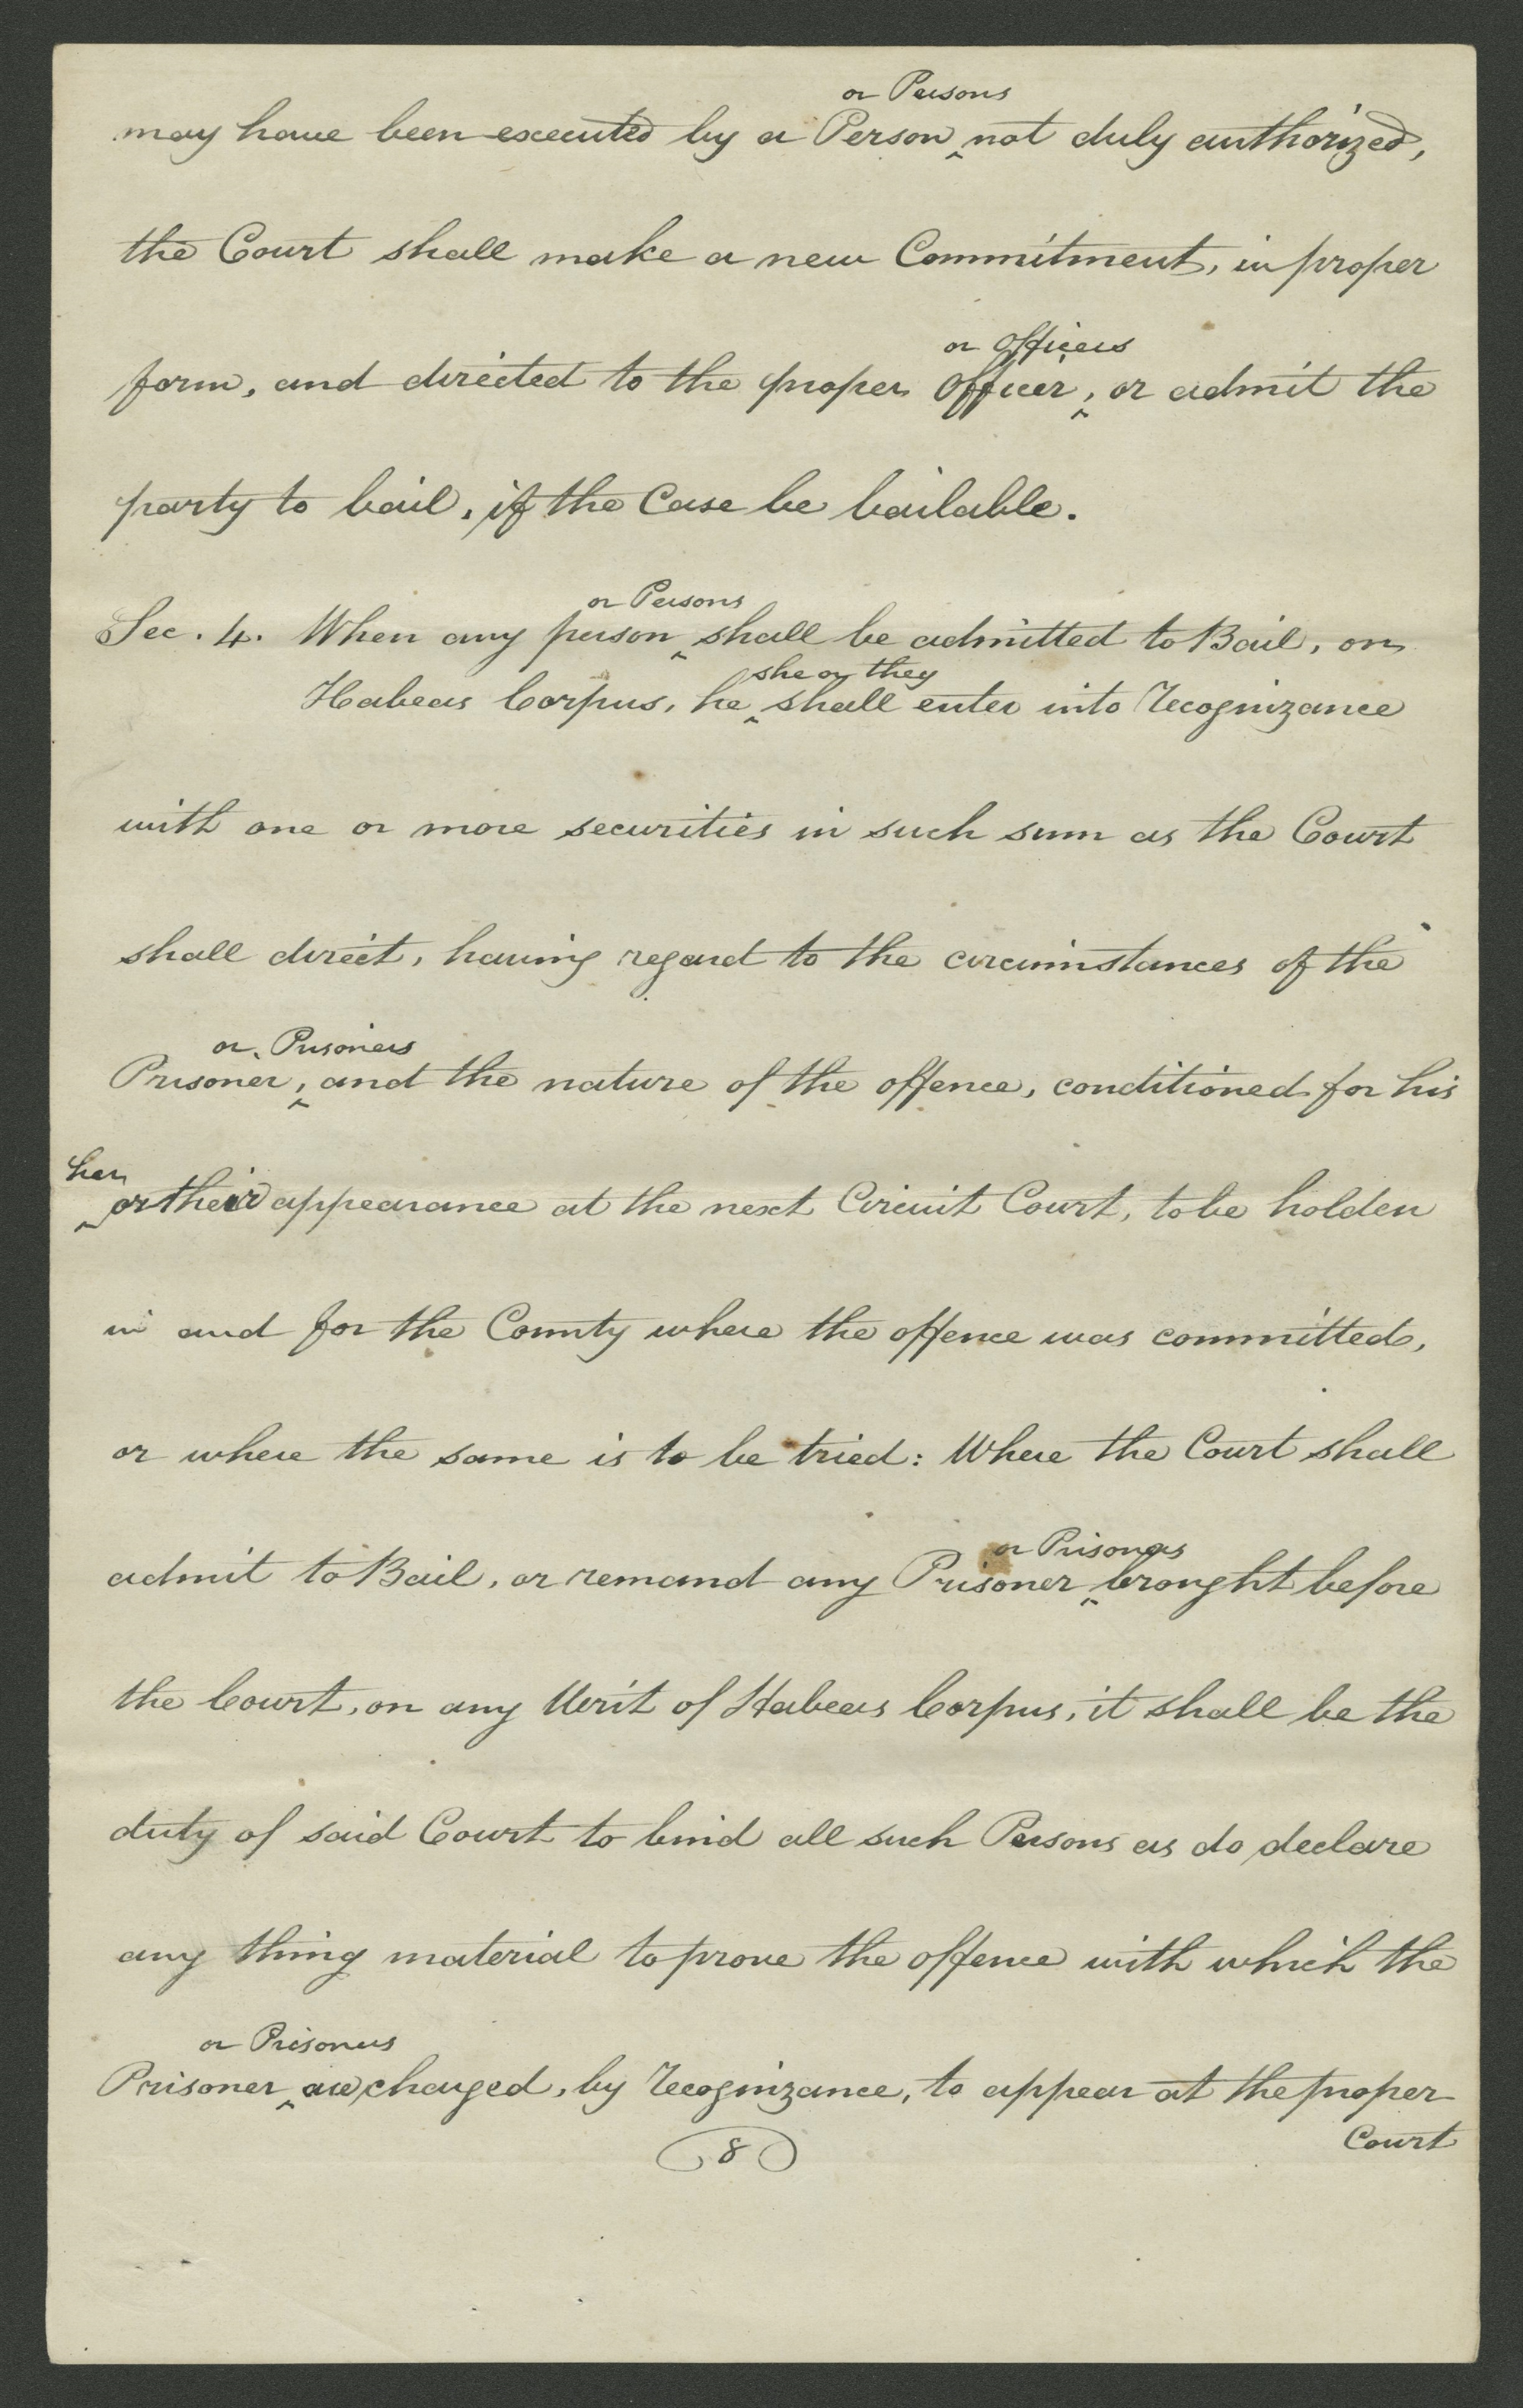 or Persons
may have been executed by a Person ‸ not duly authorized,
the Court shall make a new Commitment, in proper
or Officers
form, and directed to the proper Officer, ‸ or admit the
party to bail, if the Case be bailable.
or Persons
Sec. 4. When any person ‸ shall be admitted to Bail, on
she or they
Habeas Corpus, he ‸ shall enter into Recognizance
with one or more securities in such sum as the Court
shall direct, having regard to the circumstances of the
or Prisoners
Prisoner, ‸ and the nature of the offence, conditioned for his
her
‸ or their appearance at the next Circuit Court, to be holden
in and for the County where the offence was committed,
or where the same is to be tried: Where the Court shall
or Prisoners
admit to Bail, or remand any Prisoner ‸ brought before
the Court, on any Writ of Habeas Corpus, it shall be the
duty of said Court to bind all such Persons as do declare
any thing material to prove the offence with which the
or Prisoners
Prisoner ‸ are charged, by Recognizance, to appear at the proper
Court
8